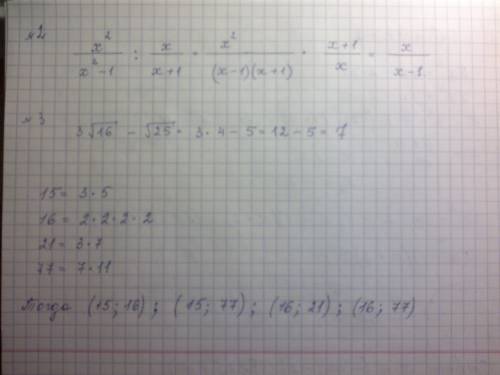 №2
x²/(x²-1) : x/(x+1) = x²/((x-1)(x+1)) · (x+1)/x = x/(x-1)
№3
3√16 - √25 = 3·4-5=12-5=7
15=3·5
16=2·2·2·2
21=3·7
77=7·11
Тогда (15; 16); (15; 77); (16; 21); (16; 77)